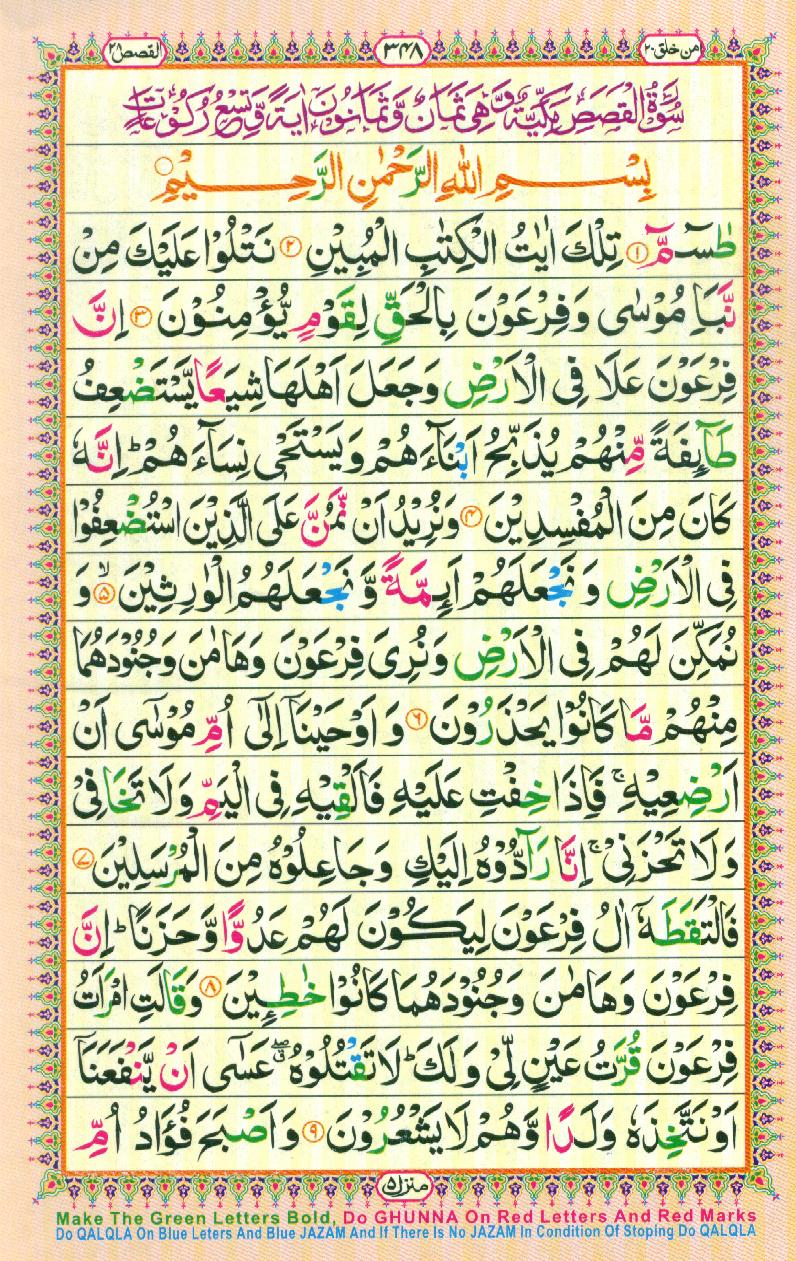 القصص ٢٨
٣٤٨
من خلق ٢٠
سُوْرَةُ الْقَصَصِ مَكِّيَّةٌ وَّهِىَ ثَمَانٌ وَّثَمَانُوْنَ اٰيَةً وَّتِسْعُ رُكُوْعَاتٍ
بِسْمِ اللّٰهِ الرَّحْمٰنِ الرَّحِيْمِ
طٰسٓمّٓ ۝١ تِلْكَ اٰيٰتُ الْكِتٰبِ الْمُبِيْنِ ۝٢ نَتْلُوْا عَلَيْكَ مِنْ
نَّبَاِ مُوْسٰى وَفِرْعَوْنَ بِالْحَقِّ لِقَوْمٍ يُّؤْمِنُوْنَ ۝٣ اِنَّ
فِرْعَوْنَ عَلَا فِى الْاَرْضِ وَجَعَلَ اَهْلَهَا شِيَعًا يَّسْتَضْعِفُ
طَآئِفَةً مِّنْهُمْ يُذَبِّحُ اَبْنَآءَهُمْ وَيَسْتَحْىٖ نِسَآءَهُمْ ؕ اِنَّهٗ
كَانَ مِنَ الْمُفْسِدِيْنَ ۝٤ وَنُرِيْدُ اَنْ نَّمُنَّ عَلَى الَّذِيْنَ اسْتُضْعِفُوْا
فِى الْاَرْضِ وَنَجْعَلَهُمْ اَئِمَّةً وَّنَجْعَلَهُمُ الْوٰرِثِيْنَ ۝٥ۙ وَ
نُمَكِّنَ لَهُمْ فِى الْاَرْضِ وَنُرِىَ فِرْعَوْنَ وَهَامٰنَ وَجُنُوْدَهُمَا
مِنْهُمْ مَّا كَانُوْا يَحْذَرُوْنَ ۝٦ وَاَوْحَيْنَاۤ اِلٰٓى اُمِّ مُوْسٰٓى اَنْ
اَرْضِعِيْهِ ۚ فَاِذَا خِفْتِ عَلَيْهِ فَاَلْقِيْهِ فِى الْيَمِّ وَلَا تَخَافِىْ
وَلَا تَحْزَنِىْ ۚ اِنَّا رَآدُّوْهُ اِلَيْكِ وَجَاعِلُوْهُ مِنَ الْمُرْسَلِيْنَ ۝٧
فَالْتَقَطَهٗۤ اٰلُ فِرْعَوْنَ لِيَكُوْنَ لَهُمْ عَدُوًّا وَّحَزَنًا ؕ اِنَّ
فِرْعَوْنَ وَهَامٰنَ وَجُنُوْدَهُمَا كَانُوْا خٰطِـِٕيْنَ ۝٨ وَقَالَتِ امْرَاَتُ
فِرْعَوْنَ قُرَّتُ عَيْنٍ لِّىْ وَلَكَ ؕ لَا تَقْتُلُوْهُ ۖۗ عَسٰٓى اَنْ يَّنْفَعَنَاۤ
اَوْ نَتَّخِذَهٗ وَلَدًا وَّهُمْ لَا يَشْعُرُوْنَ ۝٩ وَاَصْبَحَ فُؤَادُ اُمِّ
منزل ۵
Make The Green Letters Bold, Do GHUNNA On Red Letters And Red Marks
Do QALQLA On Blue Leters And Blue JAZAM And If There Is No JAZAM In Condition Of Stoping Do QALQLA